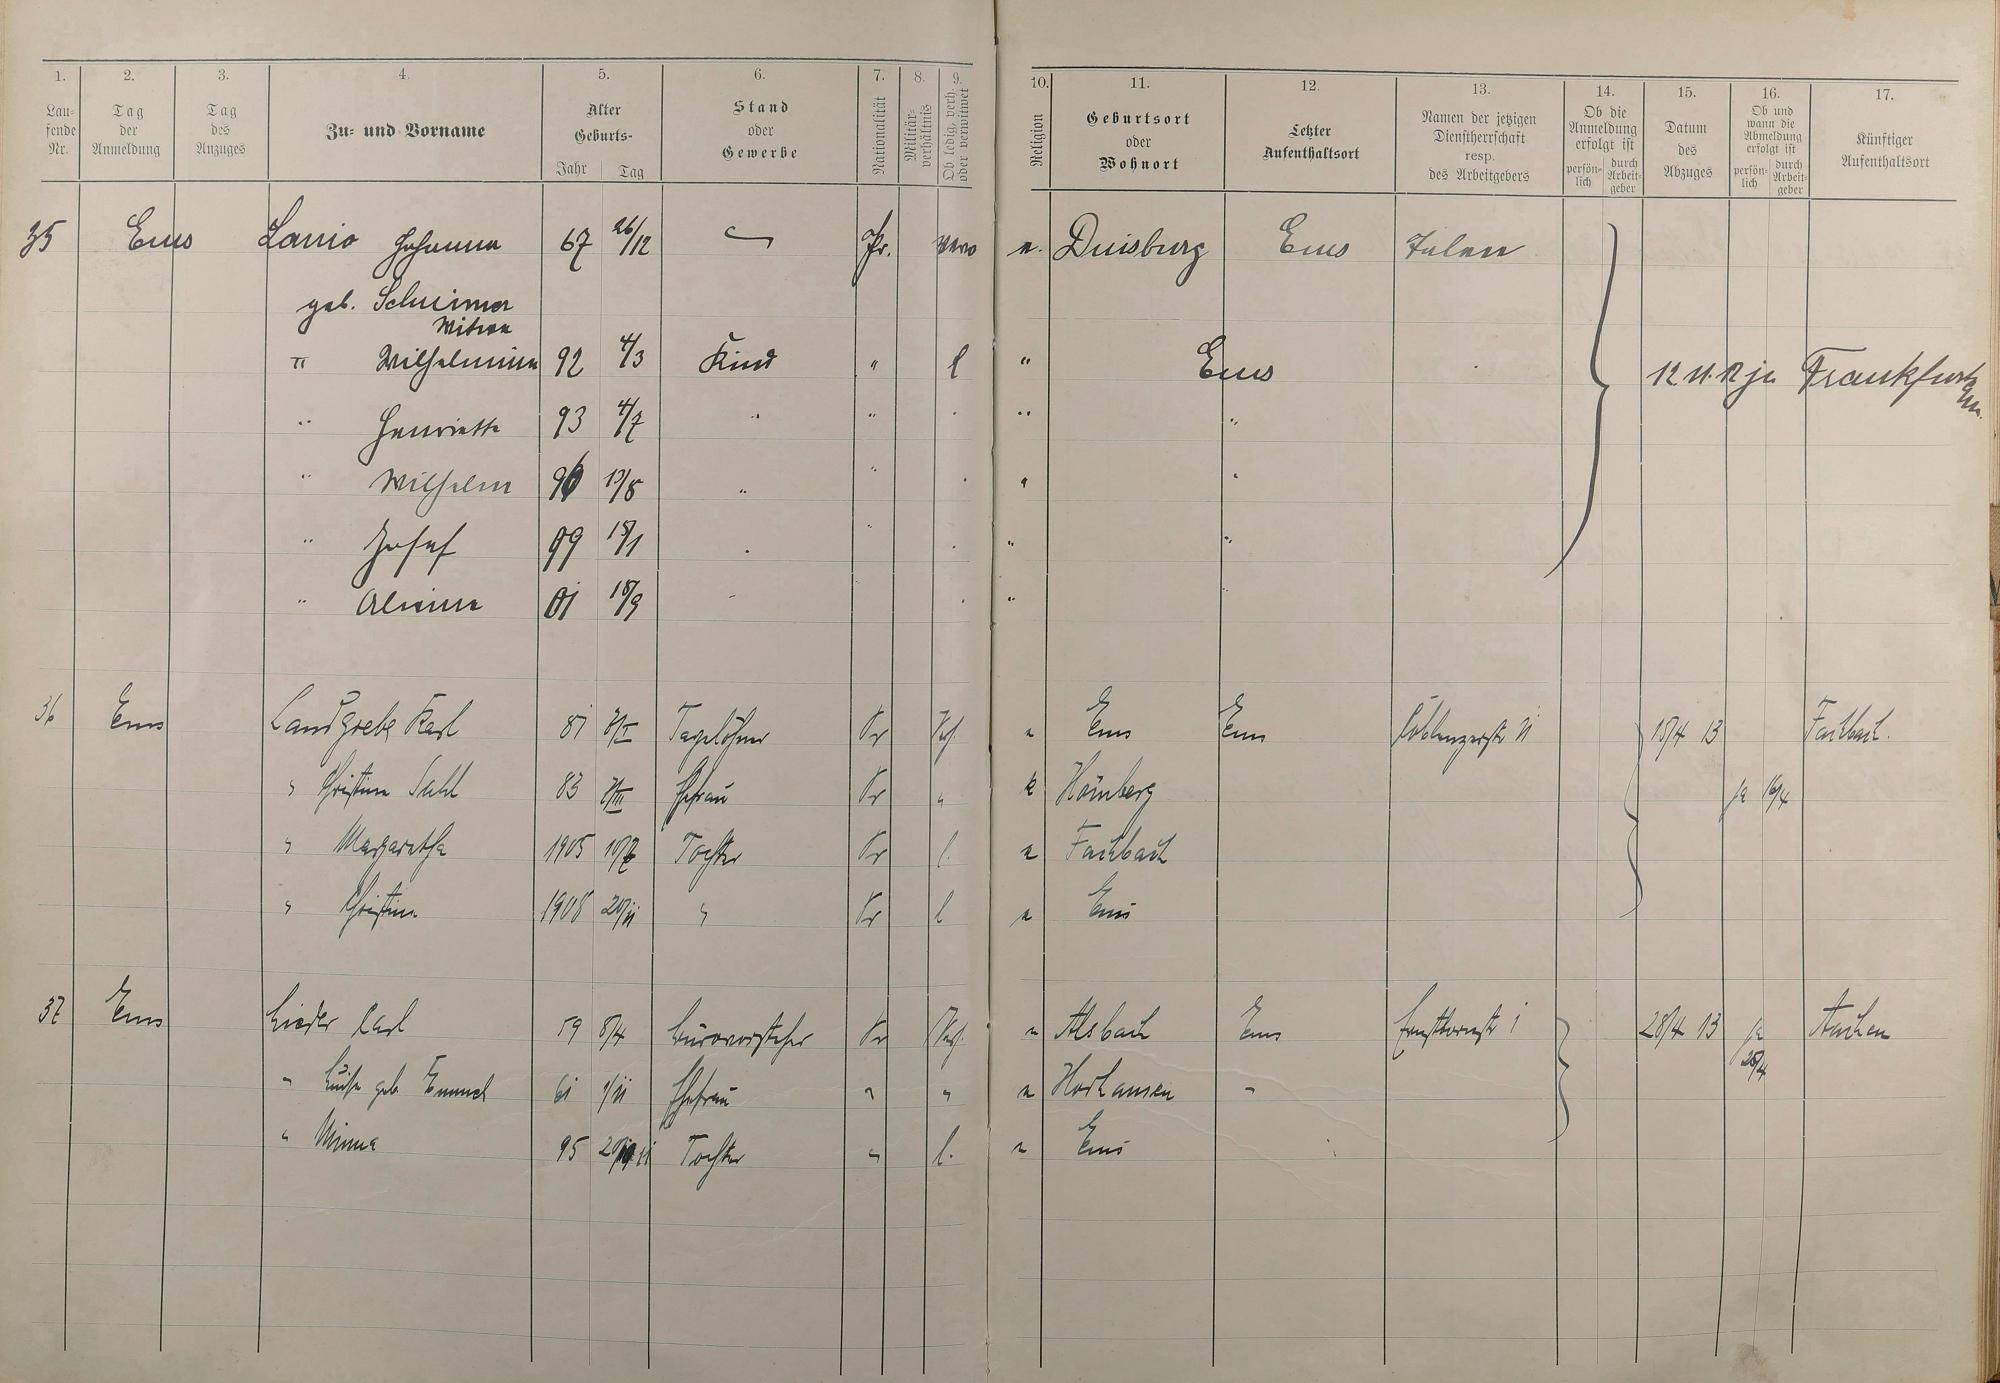 1. 2. 3. 4. 5. 6. 7. 8. 9. 10. 11. 12. 13. 14. 15. 16. 17.
Lau-
fende
Nr.
Tag
der
Anmeldung
Tag
des
Anzuges
Zu- und Vorname
Alter
Geburts-
Jahr Tag
Stand
oder
Gewerbe
Nationalität
Militär-
verhältnis
Ob ledig, verh.
oder verwitwet
Religion
Geburtsort
oder
Wohnort
Letzter
Aufenthaltsort
Namen der jetzigen
Dienstherrschaft
resp.
des Arbeitgebers
Ob die
Anmeldung
erfolgt ist
persön-
lich
durch
Arbeit-
geber
Datum
des
Abzuges
Ob und
wann die
Abmeldung
erfolgt ist
persön-
lich
durch
Arbeit-
geber
Künftiger
Aufenthaltsort
35 Ems Lanio Johanna 67 26/12 Pr. Duisburg Ems
geb.
Witwe
" Wilhelmine 92 4/3 Kind " l " Ems 12 11. 12 ja Frankfurt
" Henriette 93 4/7 " " " "
" Wilhelm 96 13/8 " " " "
" Josef 99 15/1 " " " "
" 01 18/9 " "
36 Ems Landgrebe Karl 81 Tagelöhner Pr Vh. e Ems Ems Coblenzerstr 11 15/4 13 Fachbach.
" Christine 83 Ehefrau Pr " k Hömberg ja 16/4
" Margaretha 1905 Tochter Pr l. e Fachbach
" Christine 1908 20/11 " Pr l e Ems
37 Ems Lieder Karl 59 8/4 Bürovorsteher Pr Vh. e Alsbach Ems 1 28/4 13 ja 28/4 Aachen
" Luise geb. Emmel 61 1/11 Ehefrau " " e Horhausen "
" Minna 95 Tochter " l. e Ems